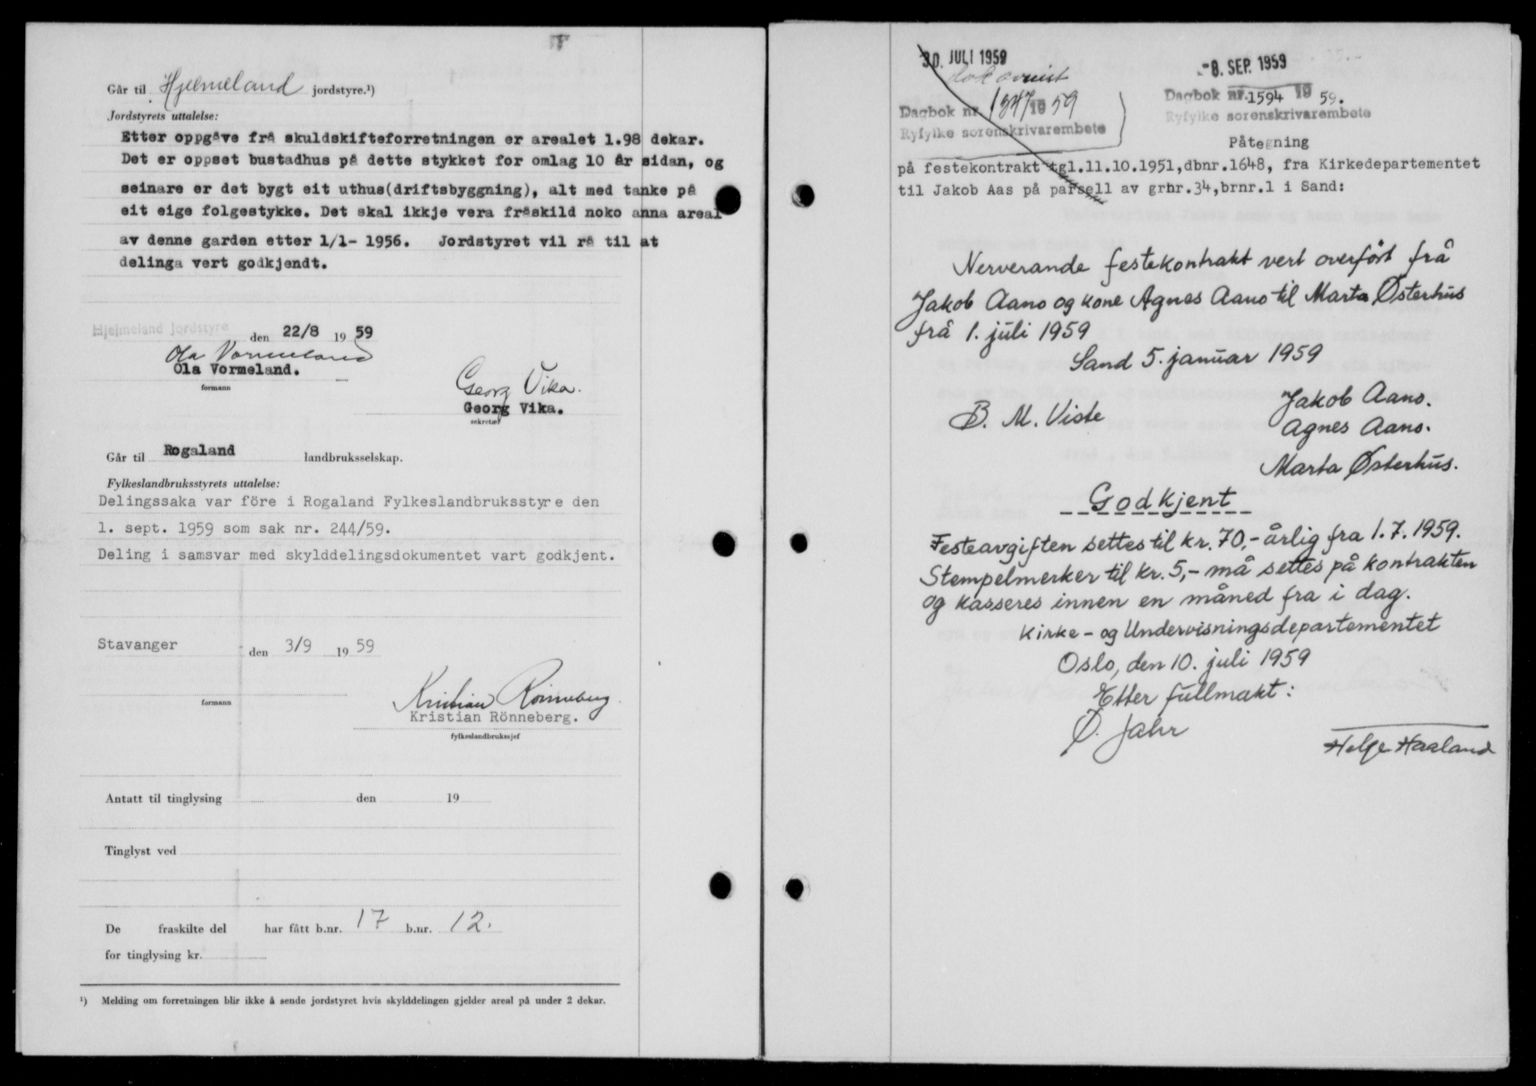 Går til Hjelmeland jordstyre.¹)
Jordstyrets uttalelse:
Etter oppgåve frå skuldskifteforretningen er arealet 1.98 dekar.
Det er oppset bustadhus på dette stykket for omlag 10 år sidan, og
seinare er det bygt eit uthus(driftsbyggning), alt med tanke på
eit eige folgestykke. Det skal ikkje vera fråskild noko anna areal
av denne garden etter 1/1- 1956. Jordstyret vil rå til at
delinga vert godkjendt.
Hjelmeland jordstyre den 22/8 1959
Ola Vormeland
Ola Vormeland.
formann
Georg Vika.
Georg Vika.
sekretær
Går til Rogaland landbruksselskap.
Fylkeslandbruksstyrets uttalelse:
Delingssaka var före i Rogaland Fylkeslandbruksstyre den
1. sept. 1959 som sak nr. 244/59.
Deling i samsvar med skylddelingsdokumentet vart godkjent.
Stavanger den 3/9 1959
formann
Kristian Rönneberg
Kristian Rönneberg.
fylkeslandbrukssjef
Antatt til tinglysing den 19
Tinglyst ved
De fraskilte del har fått b.nr. 17 b.nr. 12.
for tinglysing kr.
¹) Melding om forretningen blir ikke å sende jordstyret hvis skylddelingen gjelder areal på under 2 dekar.
30. JULI 1959
Dagbok nr. 1347 1959
Ryfylke sorenskrivarembete
-8. SEP. 1959
Dagbok nr. 1594 19 59.
Ryfylke sorenskrivarembete
Påtegning
på festekontrakt tgl.11.10.1951,dbnr.1648, fra Kirkedepartementet
til Jakob Aas på parsell av grbr.34,brnr.1 i Sand:
Nerverande festekontrakt vert overført frå
Jakob Aano og kone Agnes Aano til Marta Østerhus
frå 1. juli 1959
Sand 5. januar 1959
B. M. Viste
Jakob Aano.
Agnes Aano.
Marta Østerhus.
Godkjent
Festeavgiften settes til kr. 70,- årlig fra 1.7.1959.
Stempelmerker til kr. 5,- må settes på kontrakten
og kasseres innen en måned fra i dag.
Kirke- og Undervisningsdepartementet
Oslo, den 10. juli 1959
Etter fullmakt:
Ø. Jahr
Helge Haaland